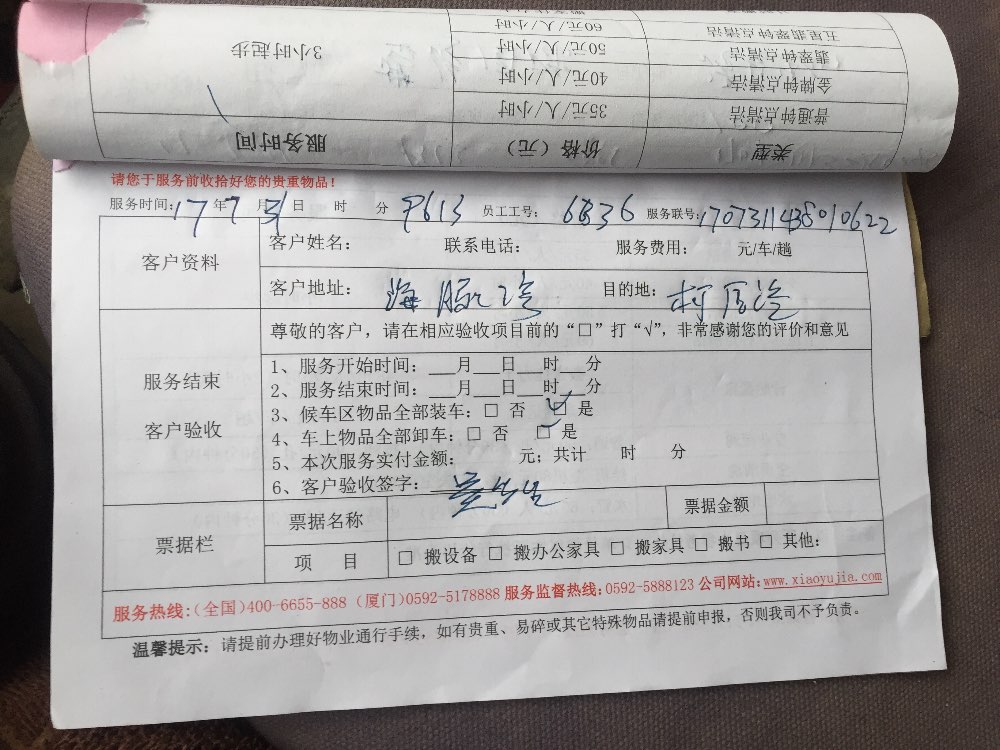 3小时起步
60元/人/小时
五星翡翠钟点清洁
50元/人/小时
翡翠钟点清洁
40元/人/小时
金牌钟点清洁
35元/人/小时
普通钟点清洁
服务时间
价格（元）
类型
请您于服务前收拾好您的贵重物品！
服务时间：17年7月31日 时 分 P613 员工工号：6836 服务联号：1707311438010622
客户资料
客户姓名： 联系电话： 服务费用： 元/车/趟
客户地址：海 湾 目的地：柯厝
服务结束
客户验收
尊敬的客户，请在相应验收项目前的“□”打“√”，非常感谢您的评价和意见
1、服务开始时间：___月___日___时___分
2、服务结束时间：___月___日___时___分
3、候车区物品全部装车：□ 否 □ 是
4、车上物品全部卸车：□ 否 □ 是
5、本次服务实付金额： 元；共计 时 分
6、客户验收签字：先生
票据栏
票据名称
票据金额
项 目
□ 搬设备 □ 搬办公家具 □ 搬家具 □ 搬书 □ 其他：
服务热线：（全国）400-6655-888（厦门）0592-5178888 服务监督热线：0592-5888123 公司网站：www.xiaoyujia.com
温馨提示：请提前办理好物业通行手续，如有贵重、易碎或其它特殊物品请提前申报，否则我司不予负责。